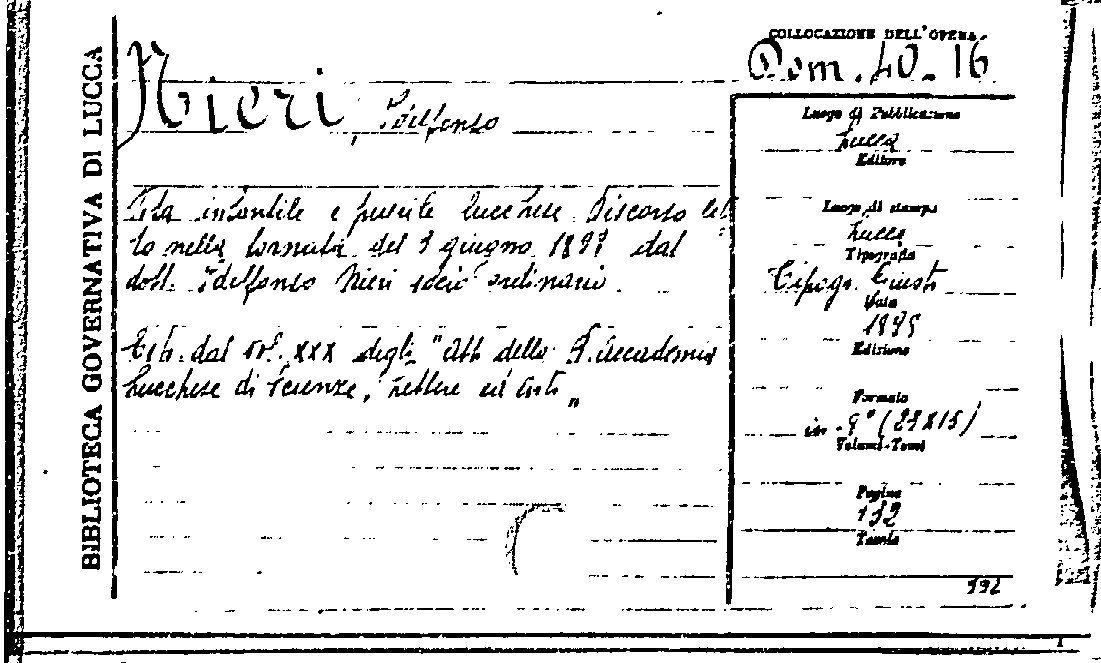 BIBLIOTECA GOVERNATIVA DI LUCCA
COLLOCAZIONE DELL'OPERA
Dom. 40-16
Nieri, Idelfonso
Vita infantile e puerile lucchese Discorso let
to nella tornata del 3 giugno 1897 dal
dott. Idelfonso Nieri socio ordinario.
Estr. dal vol. XXX degli "Atti della R. Accademia
Lucchese di Scienze, Lettere ed Arti„
Luogo di Pubblicazione
Lucca
Editore
Luogo di stampa
Lucca
Tipografia
Tipogr. Giusti
Data
Edizione
Formato
in-8° (23x15)
Volumi-Tomi
Pagine
132
Tavole